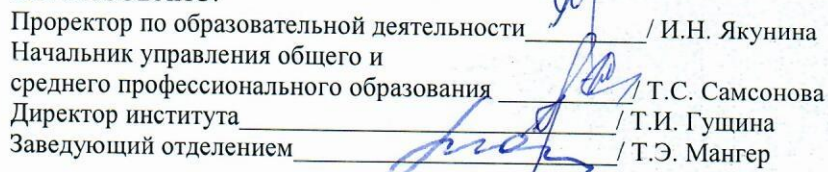 Проректор по образовательной деятельности__________/ И.Н. Якунина
Начальник управления общего и
среднего профессионального образования ___________/ Т.С. Самсонова
Директор института_______________________________/ Т.И. Гущина
Заведующий отделением___________________________/ Т.Э. Мангер